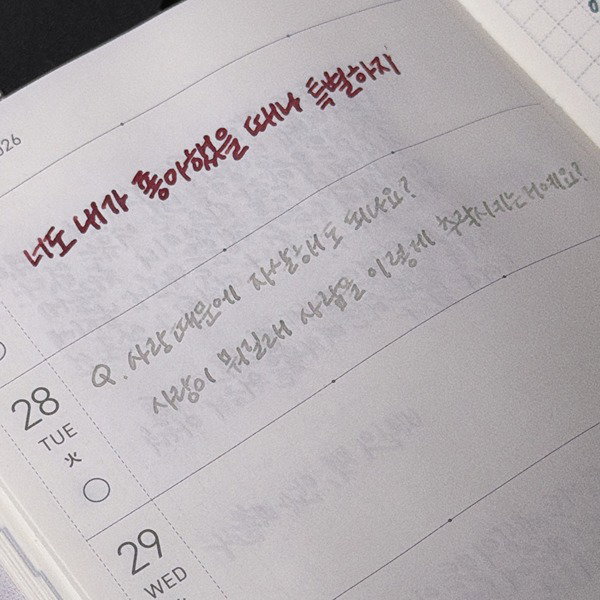 너도 내가 좋아했을 때나 특별하지
Q. 사랑 때문에 자살해도 되나요?
사랑이 뭐길래 사람을 이렇게 추락시키는거예요?
28
TUE
火
29
WED